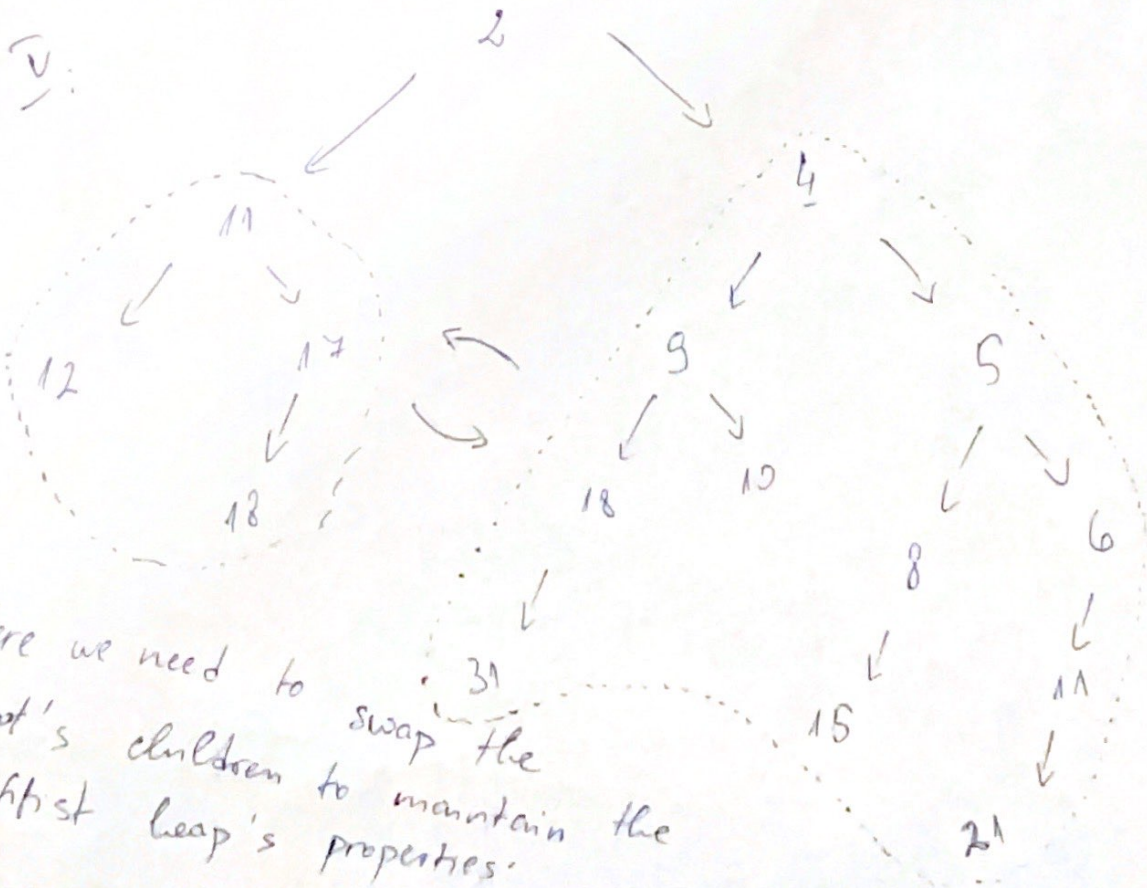 V.
2
11
4
12
17
9
5
18
18
10
8
6
31
15
11
21
ere we need to swap the
ot's children to maintain the
ftist heap's properties.